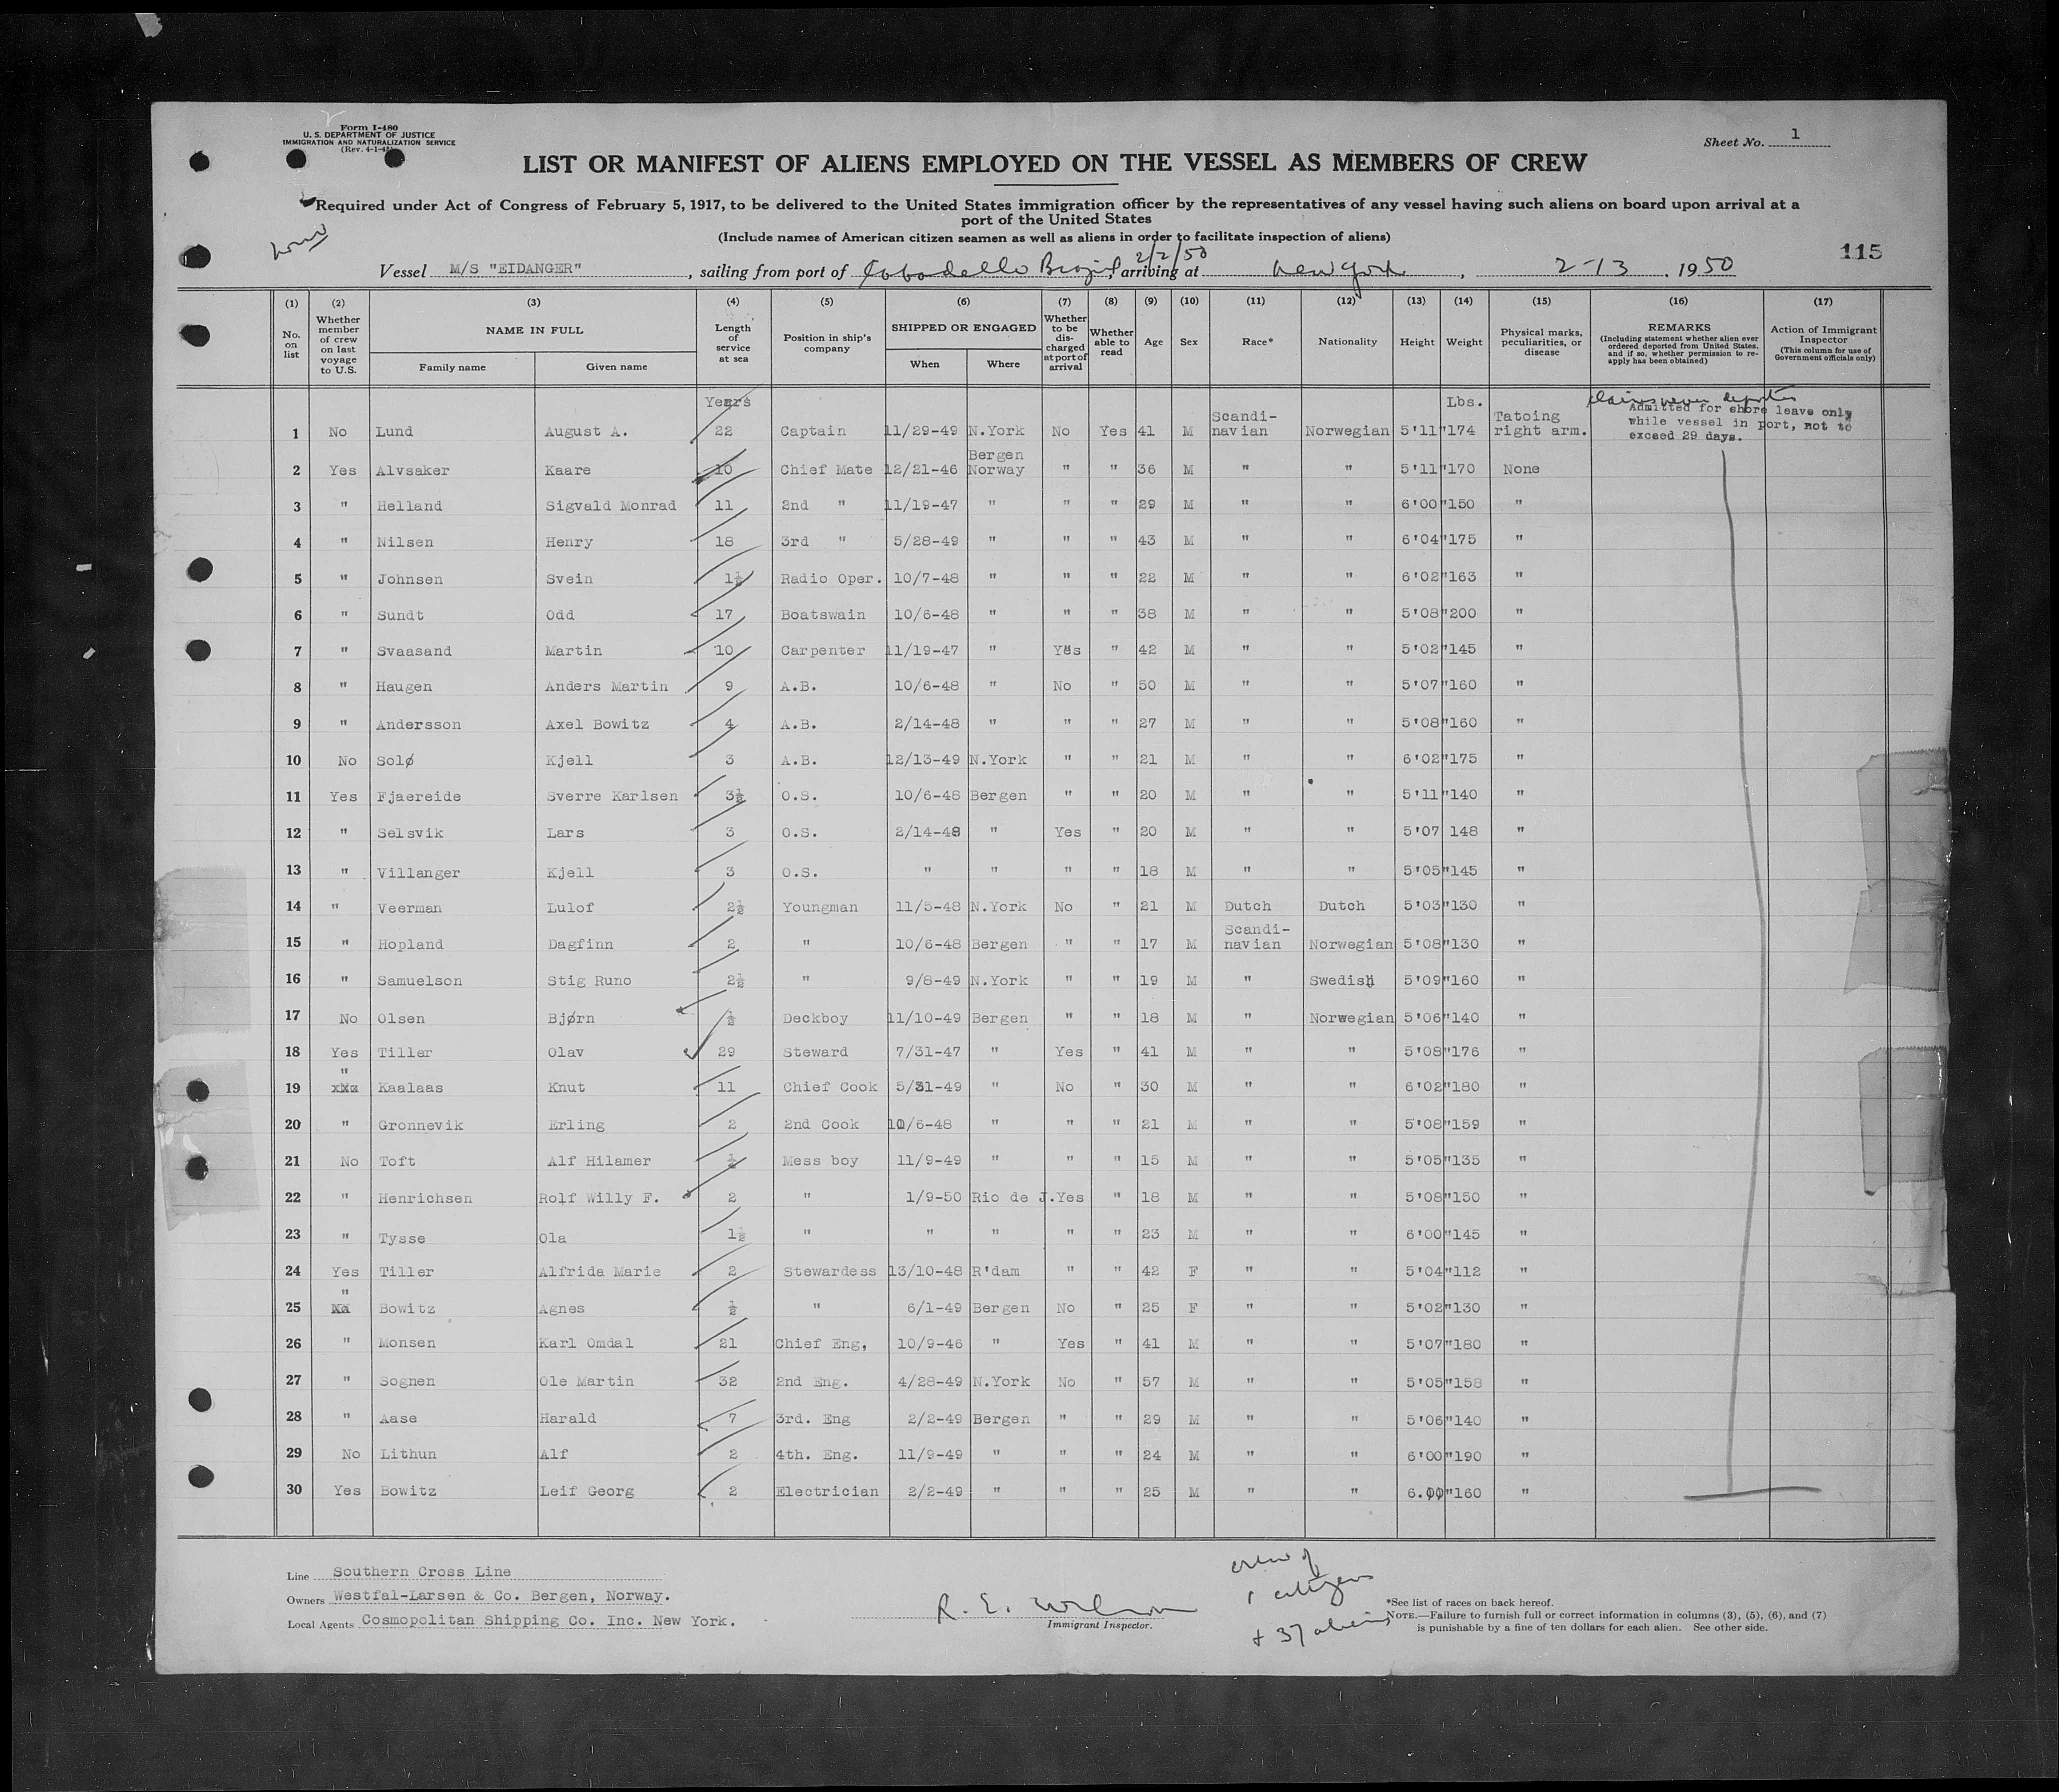 Form I-480
U. S. DEPARTMENT OF JUSTICE
IMMIGRATION AND NATURALIZATION SERVICE
(Rev. 4-1-48)
Sheet No. 1
LIST OR MANIFEST OF ALIENS EMPLOYED ON THE VESSEL AS MEMBERS OF CREW
Required under Act of Congress of February 5, 1917, to be delivered to the United States immigration officer by the representatives of any vessel having such aliens on board upon arrival at a
port of the United States
(Include names of American citizen seamen as well as aliens in order to facilitate inspection of aliens)
115
2/2/50
Vessel M/S "EIDANGER", sailing from port of Cabadello Brazil, arriving at New York, 2-13, 1950
(1) (2) (3) (4) (5) (6) (7) (8) (9) (10) (11) (12) (13) (14) (15) (16) (17)
No. on list
Whether member of crew on last voyage to U.S.
NAME IN FULL
Family name
Given name
Length of service at sea
Position in ship's company
SHIPPED OR ENGAGED
When
Where
Whether to be discharged at port of arrival
Whether able to read
Age
Sex
Race*
Nationality
Height
Weight
Physical marks, peculiarities, or disease
REMARKS
(Including statement whether alien ever ordered deported from United States, and if so, whether permission to re-apply has been obtained)
Action of Immigrant Inspector
(This column for use of Government officials only)
Years Lbs.
claims never deported
Admitted for shore leave only
while vessel in port, not to
exceed 29 days.
1 No Lund August A. 22 Captain 11/29-49 N.York No Yes 41 M Scandi-navian Norwegian 5'11" 174 Tatoing right arm.
2 Yes Alvsaker Kaare 10 Chief Mate 12/21-46 Bergen Norway " " 36 M " " 5'11" 170 None
3 " Helland Sigvald Monrad 11 2nd " 11/19-47 " " " 29 M " " 6'00" 150 "
4 " Nilsen Henry 18 3rd " 5/28-49 " " " 43 M " " 6'04" 175 "
5 " Johnsen Svein 1½ Radio Oper. 10/7-48 " " " 22 M " " 6'02" 163 "
6 " Sundt Odd 17 Boatswain 10/6-48 " " " 38 M " " 5'08" 200 "
7 " Svaasand Martin 10 Carpenter 11/19-47 " Yes " 42 M " " 5'02" 145 "
8 " Haugen Anders Martin 9 A.B. 10/6-48 " No " 50 M " " 5'07" 160 "
9 " Andersson Axel Bowitz 4 A.B. 2/14-48 " " " 27 M " " 5'08" 160 "
10 No Solø Kjell 3 A.B. 12/13-49 N.York " " 21 M " " 6'02" 175 "
11 Yes Fjaereide Sverre Karlsen 3½ O.S. 10/6-48 Bergen " " 20 M " " 5'11" 140 "
12 " Selsvik Lars 3 O.S. 2/14-48 " Yes " 20 M " " 5'07 148 "
13 " Villanger Kjell 3 O.S. " " " " 18 M " " 5'05" 145 "
14 " Veerman Lulof 2½ Youngman 11/5-48 N.York No " 21 M Dutch Dutch 5'03" 130 "
15 " Hopland Dagfinn 2 " 10/6-48 Bergen " " 17 M Scandi-navian Norwegian 5'08" 130 "
16 " Samuelson Stig Runo 2½ " 9/8-49 N.York " " 19 M " Swedish 5'09" 160 "
17 No Olsen Bjørn ½ Deckboy 11/10-49 Bergen " " 18 M " Norwegian 5'06" 140 "
18 Yes Tiller Olav 29 Steward 7/31-47 " Yes " 41 M " " 5'08" 176 "
19 " Kaalaas Knut 11 Chief Cook 5/31-49 " No " 30 M " " 6'02" 180 "
20 " Gronnevik Erling 2 2nd Cook 10/6-48 " " " 21 M " " 5'08" 159 "
21 No Toft Alf Hilamer ½ Mess boy 11/9-49 " " " 15 M " " 5'05" 135 "
22 " Henrichsen Rolf Willy F. 2 " 1/9-50 Rio de J. Yes " 18 M " " 5'08" 150 "
23 " Tysse Ola 1½ " " " " " 23 M " " 6'00" 145 "
24 Yes Tiller Alfrida Marie 2 Stewardess 13/10-48 R'dam " " 42 F " " 5'04" 112 "
25 " Bowitz Agnes ½ " 6/1-49 Bergen No " 25 F " " 5'02" 130 "
26 " Monsen Karl Omdal 21 Chief Eng, 10/9-46 " Yes " 41 M " " 5'07" 180 "
27 " Sognen Ole Martin 32 2nd Eng. 4/28-49 N.York No " 57 M " " 5'05" 158 "
28 " Aase Harald 7 3rd. Eng 2/2-49 Bergen " " 29 M " " 5'06" 140 "
29 No Lithun Alf 2 4th. Eng. 11/9-49 " " " 24 M " " 6'00" 190 "
30 Yes Bowitz Leif Georg 2 Electrician 2/2-49 " " " 25 M " " 6.00" 160 "
Line Southern Cross Line
Owners Westfal-Larsen & Co. Bergen, Norway.
Local Agents Cosmopolitan Shipping Co. Inc. New York.
R. E. Wilson
Immigrant Inspector.
crew of
1 citizen
+ 37 aliens
*See list of races on back hereof.
NOTE.—Failure to furnish full or correct information in columns (3), (5), (6), and (7)
is punishable by a fine of ten dollars for each alien. See other side.